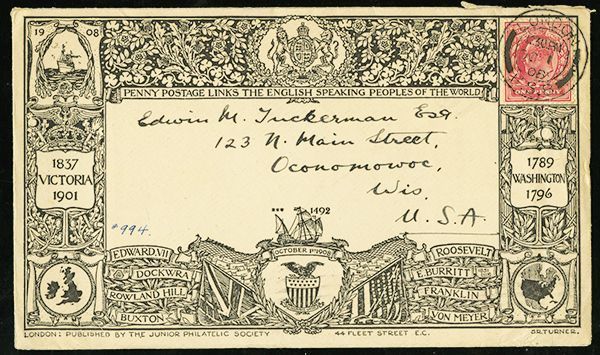 19 08
PENNY POSTAGE LINKS THE ENGLISH SPEAKING PEOPLES OF THE WORLD
LONDON
ONE PENNY
Edwin M. Tuckerman Esq.
123 N. Main Street,
Oconomowoc,
Wis,
U.S.A.
1837
VICTORIA
1901
1789
WASHINGTON
1796
1492
#994.
OCTOBER 1ST 1908
EDWARD VII
DOCKWRA
ROWLAND HILL
BUXTON
ROOSEVELT
E. BURRITT
FRANKLIN
VON MEYER
LONDON: PUBLISHED BY THE JUNIOR PHILATELIC SOCIETY 44 FLEET STREET E.C. G.R. TURNER.